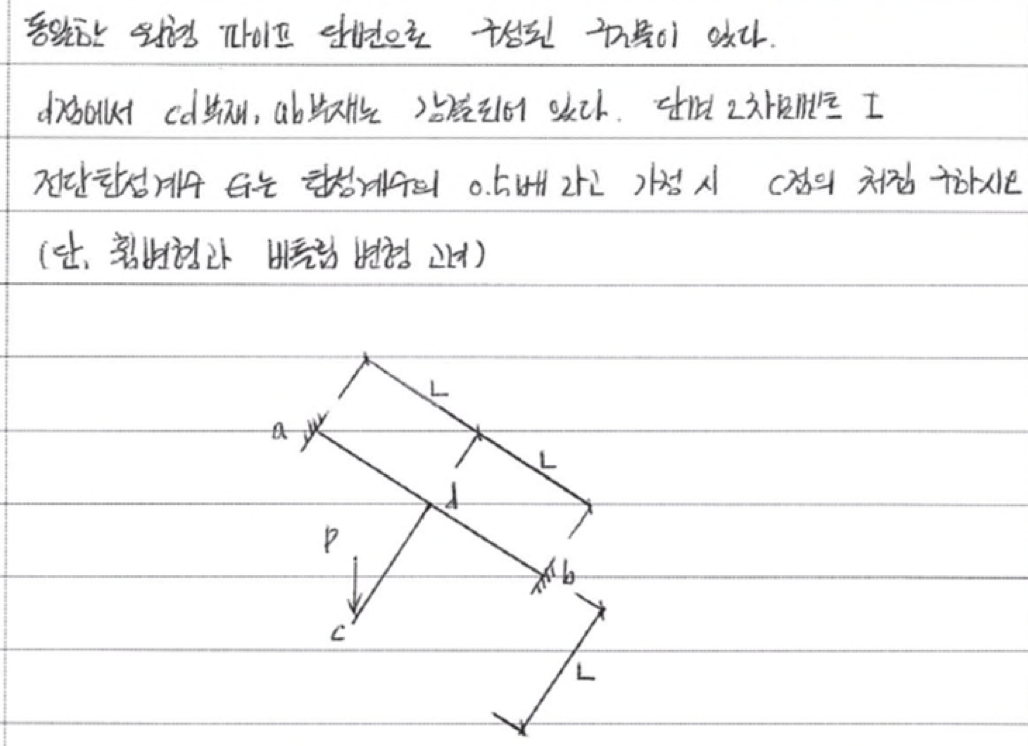 동일한 원형 파이프 단면으로 구성된 구조물이 있다.
d점에서 cd부재, ab부재는 강결되어 있다. 단면 2차모멘트 I
전단탄성계수 G는 탄성계수의 0.5배 라고 가정 시 c점의 처짐 구하시오
(단, 휨변형과 비틀림 변형 고려)
L
a
L
d
P
b
c
L